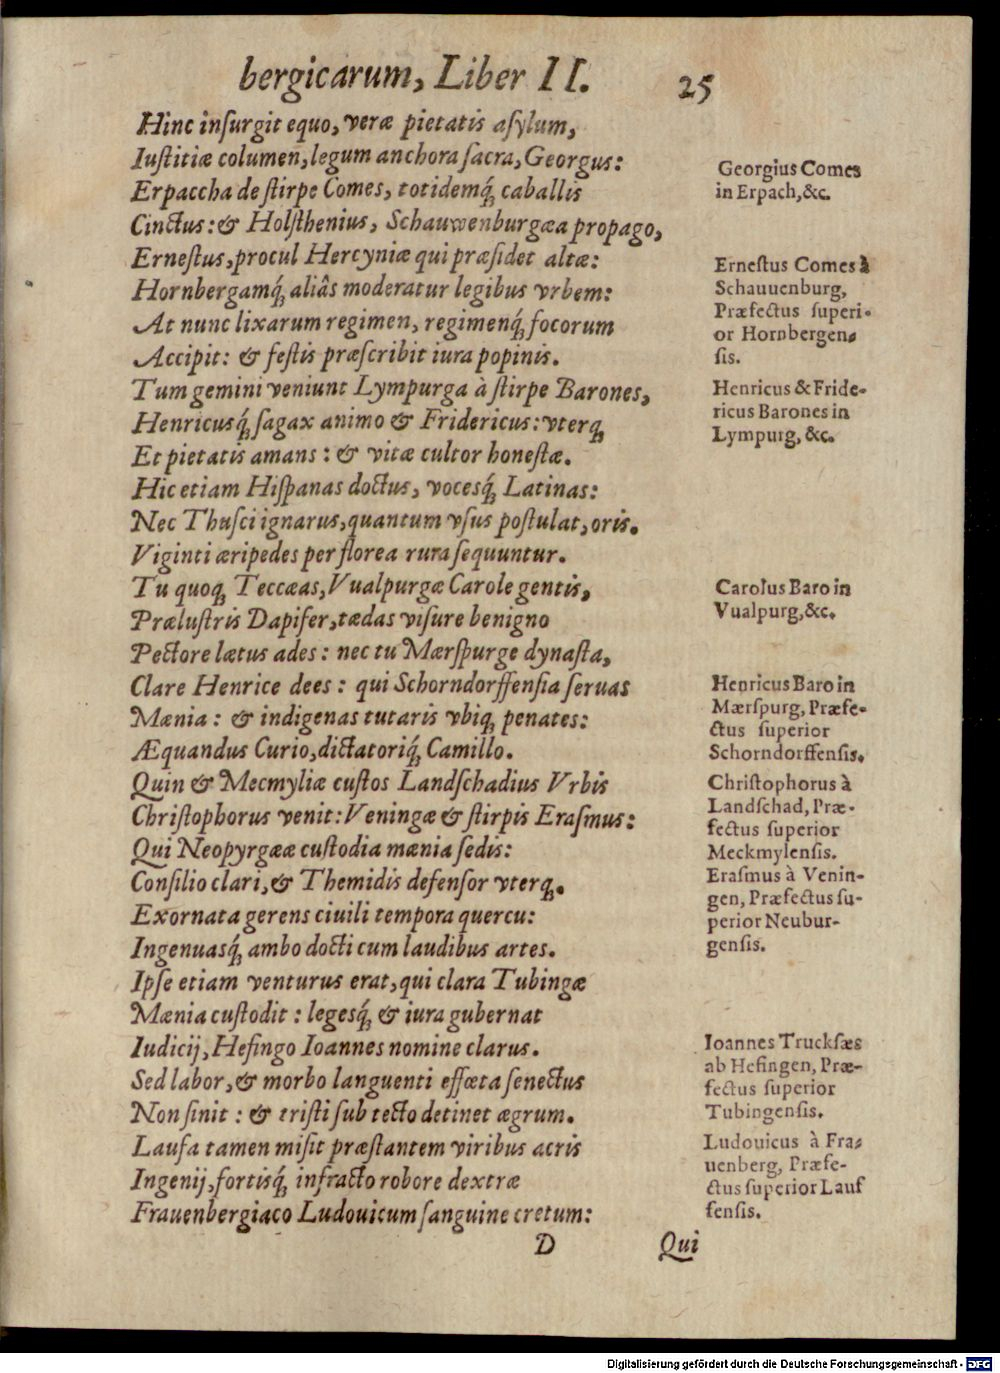 bergicarum, Liber II. 25
Hinc insurgit equo, veræ pietatis asylum,
Iustitiæ columen, legum anchora sacra, Georgus:
Erpaccha de stirpe Comes, totidemq́; caballis
Cinctus: & Holsthenius, Schauwenburgæa propago,
Ernestus, procul Hercyniæ qui præsidet altæ:
Hornbergamq́; aliâs moderatur legibus vrbem:
At nunc lixarum regimen, regimenq́; focorum
Accipit: & festis præscribit iura popinis.
Tum gemini veniunt Lympurga à stirpe Barones,
Henricusq́; sagax animo & Fridericus: vterq;
Et pietatis amans: & vitæ cultor honestæ.
Hic etiam Hispanas doctus, vocesq́; Latinas:
Nec Thusci ignarus, quantum vsus postulat, oris.
Viginti æripedes per florea rura sequuntur.
Tu quoq; Teccæas, Vualpurgæ Carole gentis,
Prælustris Dapifer, tædas visure benigno
Pectore lætus ades: nec tu Mærspurge dynasta,
Clare Henrice dees: qui Schorndorffensia seruas
Mænia: & indigenas tutaris vbiq; penates:
Æquandus Curio, dictatoriq́; Camillo.
Quin & Mecmyliæ custos Landschadius Vrbis
Christophorus venit: Veningæ & stirpis Erasmus:
Qui Neopyrgææ custodia mænia sedis:
Consilio clari, & Themidis defensor vterq;.
Exornata gerens ciuili tempora quercu:
Ingenuasq́; ambo docti cum laudibus artes.
Ipse etiam venturus erat, qui clara Tubingæ
Mænia custodit: legesq́; & iura gubernat
Iudicij, Hefingo Ioannes nomine clarus.
Sed labor, & morbo languenti effœta senectus
Non sinit: & tristi sub tecto detinet ægrum.
Laufa tamen misit præstantem viribus acris
Ingenij, fortisq́; infracto robore dextræ
Frauenbergiaco Ludouicum sanguine cretum:
D Qui
Georgius Comes
in Erpach, &c.
Ernestus Comes à
Schauuenburg,
Præfectus superi-
or Hornbergen-
sis.
Henricus & Fride-
ricus Barones in
Lympurg, &c.
Carolus Baro in
Vualpurg, &c.
Henricus Baro in
Mærspurg, Præfe-
ctus superior
Schorndorffensis.
Christophorus à
Landschad, Præ-
fectus superior
Meckmylensis.
Erasmus à Venin-
gen, Præfectus su-
perior Neubur-
gensis.
Ioannes Trucksæs
ab Hefingen, Præ-
fectus superior
Tubingensis.
Ludouicus à Fra-
uenberg, Præfe-
ctus superior Lauf
fensis.
Digitalisierung gefördert durch die Deutsche Forschungsgemeinschaft - DFG